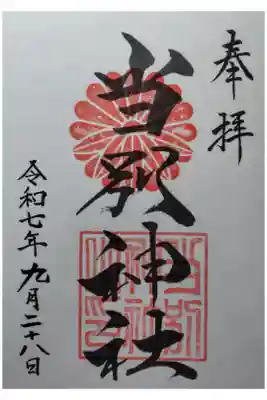 奉拝
当別神社
令和七年九月二十八日